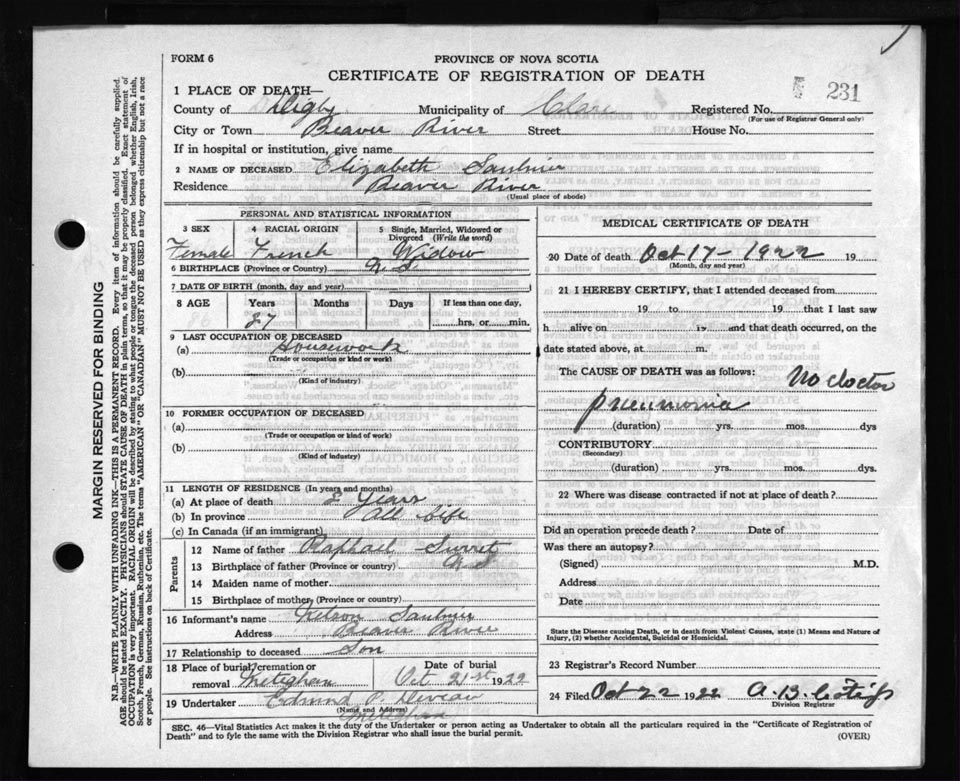 FORM 6
PROVINCE OF NOVA SCOTIA
CERTIFICATE OF REGISTRATION OF DEATH
231
1 PLACE OF DEATH—
County of Digby Municipality of Clare Registered No.
(For use of Registrar General only)
City or Town Beaver River Street House No.
If in hospital or institution, give name
2 NAME OF DECEASED Elizabeth Saulnier
Residence Beaver River
(Usual place of abode)
PERSONAL AND STATISTICAL INFORMATION
3 SEX 4 RACIAL ORIGIN 5 Single, Married, Widowed or Divorced (Write the word)
Female French Widow
6 BIRTHPLACE (Province or Country) N. S.
7 DATE OF BIRTH (month, day and year)
8 AGE Years Months Days If less than one day,
87 hrs. or min.
9 LAST OCCUPATION OF DECEASED
(a) Housework
(Trade or occupation or kind or work)
(b)
(Kind of industry)
10 FORMER OCCUPATION OF DECEASED
(a)
(Trade or occupation or kind of work)
(b)
(Kind of industry)
11 LENGTH OF RESIDENCE (In years and months)
(a) At place of death 8 Years
(b) In province All life
(c) In Canada (if an immigrant)
Parents
12 Name of father Raphael Surret
13 Birthplace of father (Province or country) N S
14 Maiden name of mother
15 Birthplace of mother (Province or country)
16 Informant's name Nelson Saulnier
Address Beaver River
17 Relationship to deceased Son
18 Place of burial, cremation or removal Meteghan Date of burial Oct 21st 1922
19 Undertaker Edmund P. Deveau
(Name and Address)
Meteghan
MEDICAL CERTIFICATE OF DEATH
20 Date of death Oct 17 - 1922 19
(Month, day and year)
21 I HEREBY CERTIFY, that I attended deceased from
19 to 19 that I last saw
h alive on 19 and that death occurred, on
date stated above, at m.
The CAUSE OF DEATH was as follows: No doctor
Pneumonia
(duration) yrs. mos. dys
CONTRIBUTORY
(Secondary)
(duration) yrs. mos. dys.
22 Where was disease contracted if not at place of death?
Did an operation precede death? Date of
Was there an autopsy?
(Signed) M.D.
Address
Date
State the Disease causing Death, or in death from Violent Causes, state (1) Means and Nature of
Injury, (2) whether Accidental, Suicidal or Homicidal.
23 Registrar's Record Number
24 Filed Oct 22 1922 A. B.
Division Registrar
SEC. 46—Vital Statistics Act makes it the duty of the Undertaker or person acting as Undertaker to obtain all the particulars required in the "Certificate of Registration of
Death" and to fyle the same with the Division Registrar who shall issue the burial permit.
(OVER)
MARGIN RESERVED FOR BINDING
N.B.—WRITE PLAINLY WITH UNFADING INK—THIS IS A PERMANENT RECORD. Every item of information should be carefully supplied.
AGE should be stated EXACTLY. PHYSICIANS should STATE CAUSE OF DEATH in plain terms, so that it may be properly classified. Exact statement of
OCCUPATION is very important. RACIAL ORIGIN will be described by stating to what people or tongue the deceased person belonged whether English, Irish,
Scotch, French, German, Russian, Ruthenian, etc. The terms "AMERICAN" OR "CANADIAN" MUST NOT BE USED as they express citizenship but not a race
or people. See instructions on back of Certificate.